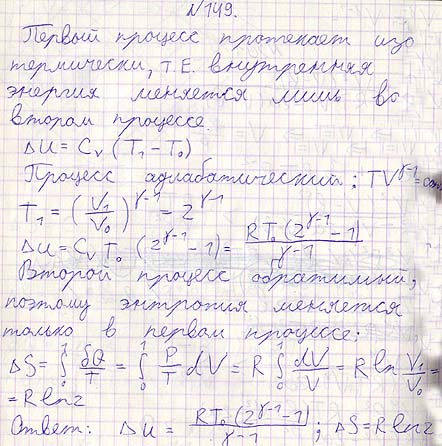 №149.
Первый процесс протекает изо
термически, т.е. внутренняя
энергия меняется лишь во
втором процессе.
ΔU = C_V (T_1 - T_0)
Процесс адиабатический; TV^{γ-1} = const
T_1 = (V_1/V_0)^{γ-1} = 2^{γ-1}
ΔU = C_V T_0 (2^{γ-1} - 1) = RT_0 (2^{γ-1} - 1)/(γ-1)
Второй процесс обратимый,
поэтому энтропия меняется
только в первом процессе:
ΔS = ∫_0^1 δQ/T = ∫_0^1 P/T dV = R ∫_0^1 dV/V = R ln V_1/V_0 =
= R ln 2
Ответ: ΔU = RT_0 (2^{γ-1} - 1)/(γ-1) ; ΔS = R ln 2